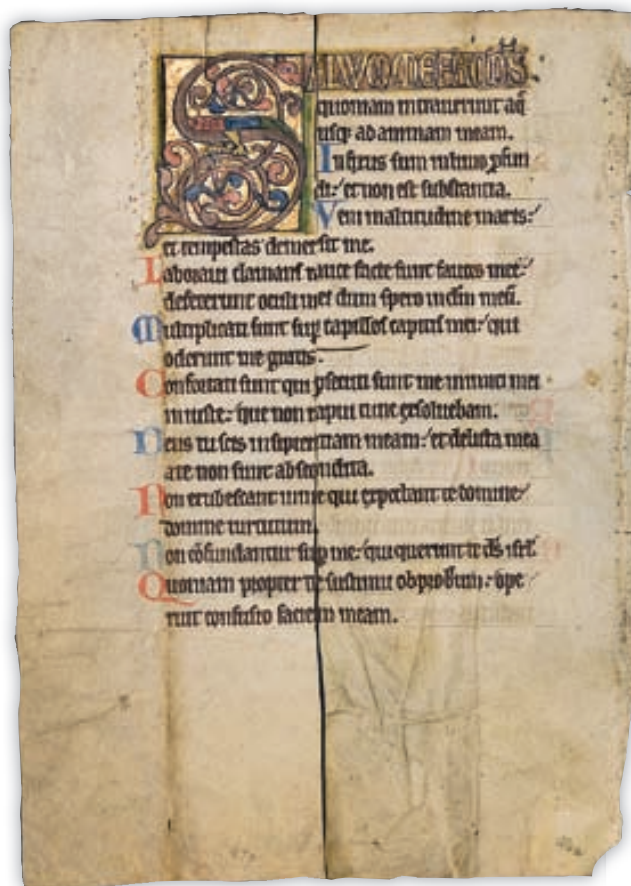 SALVŪ ME FAC DS
quoniam intrauerunt aq̄
usq; ad animam meam.
Infixus sum in limo ꝓfun
di: et non est substantia.
Veni in altitudine maris:
et tempestas demersit me.
Laboraui clamans rauce facte sunt fauces mee:
defecerunt oculi mei dum spero in dm̄ meū.
Multiplicati sunt sup̄ capillos capitis mei: qui
oderunt me gratis.
Confortati sunt qui ꝑsecuti sunt me inimici mei
iniuste: que non rapui tunc exsoluebam.
Deus tu scis insipientiam meam: et delicta mea
a te non sunt abscondita.
Non erubescant in me qui expectant te domine:
domine uirtutum.
Non cōfundantur sup̄ me: qui querunt te ds̄ isrl̄.
Quoniam propter te sustinui obprobrium: ope
ruit confusio faciem meam.